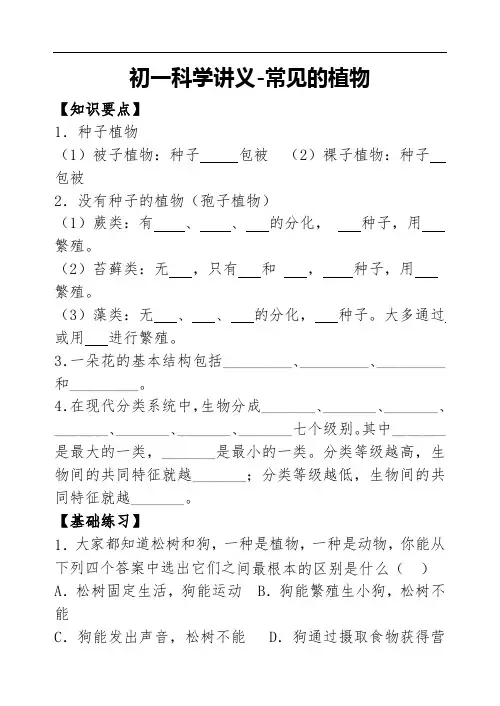 初一科学讲义-常见的植物
【知识要点】
1．种子植物
（1）被子植物：种子____包被 （2）裸子植物：种子__
包被
2．没有种子的植物（孢子植物）
（1）蕨类：有____、___、___的分化，___种子，用___
繁殖。
（2）苔藓类：无___，只有___和___，____种子，用___
繁殖。
（3）藻类：无___、___、___的分化，___种子。大多通过
或用___进行繁殖。
3.一朵花的基本结构包括_________、_________、_________
和_________。
4.在现代分类系统中，生物分成_______、_______、_______、
_______、_______、_______、_______七个级别。其中_______
是最大的一类，_______是最小的一类。分类等级越高，生
物间的共同特征就越_______；分类等级越低，生物间的共
同特征就越_______。
【基础练习】
1．大家都知道松树和狗，一种是植物，一种是动物，你能从
下列四个答案中选出它们之间最根本的区别是什么（ ）
A．松树固定生活，狗能运动 B．狗能繁殖生小狗，松树不
能
C．狗能发出声音，松树不能 D．狗通过摄取食物获得营